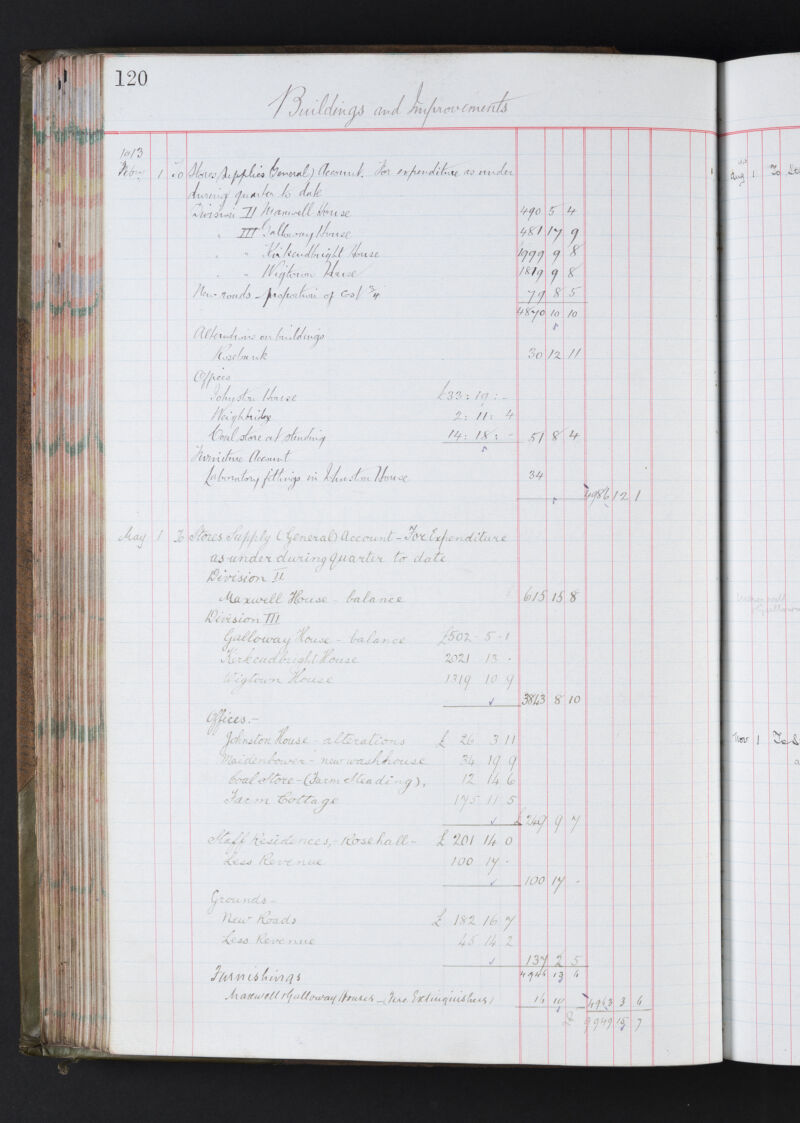 120
Buildings and Improvements
1913
Febry 1 To Stores Supplies (General) Account. For expenditure as under
during quarter to date
Division II Maxwell House 490 5 4
" III Galloway House 481 17 9
" " Kirkcudbright House 1999 9 8
" " Wigtown House 1819 9 8
New roads - proportion of Cost 3/4 79 8 5
4870 10 10
Alterations on buildings
Rosebank 30 12 11
Offices
Johnston House £33: 19: -
Weighbridge 2: 11: 4
Coal store at steading 14: 18: - 51 8 4
Furniture Account
Laboratory fittings in Johnston House 34
4986 12 1
May 1 To Stores Supply (General) Account - For Expenditure
as under during quarter to date
Division II
Maxwell House - balance 615 15 8
Division III
Galloway House - balance £502 - 5 - 1
Kirkcudbright House 2021 13 -
Wigtown House 1319 10 9
3843 8 10
Offices:-
Johnston House - alterations £ 26 3 11
Maidenbower - new washhouse 34 19 9
Coal Store - (Farm Steading), 12 14 6
Farm Cottage 175 11 5
£ 249 9 7
Staff Residences, - Rosehall - £ 201 14 0
Less Revenue 100 17 -
100 17 -
Grounds -
New Roads £ 182 16 7
Less Revenue 45 14 2
137 2 5
4946 13 6
Furnishings
Maxwell & Galloway Houses - (Fire Extinguishers) 16 10 - 4963 3 6
£ 9949 15 7
Aug 1 To
Nov 1 To